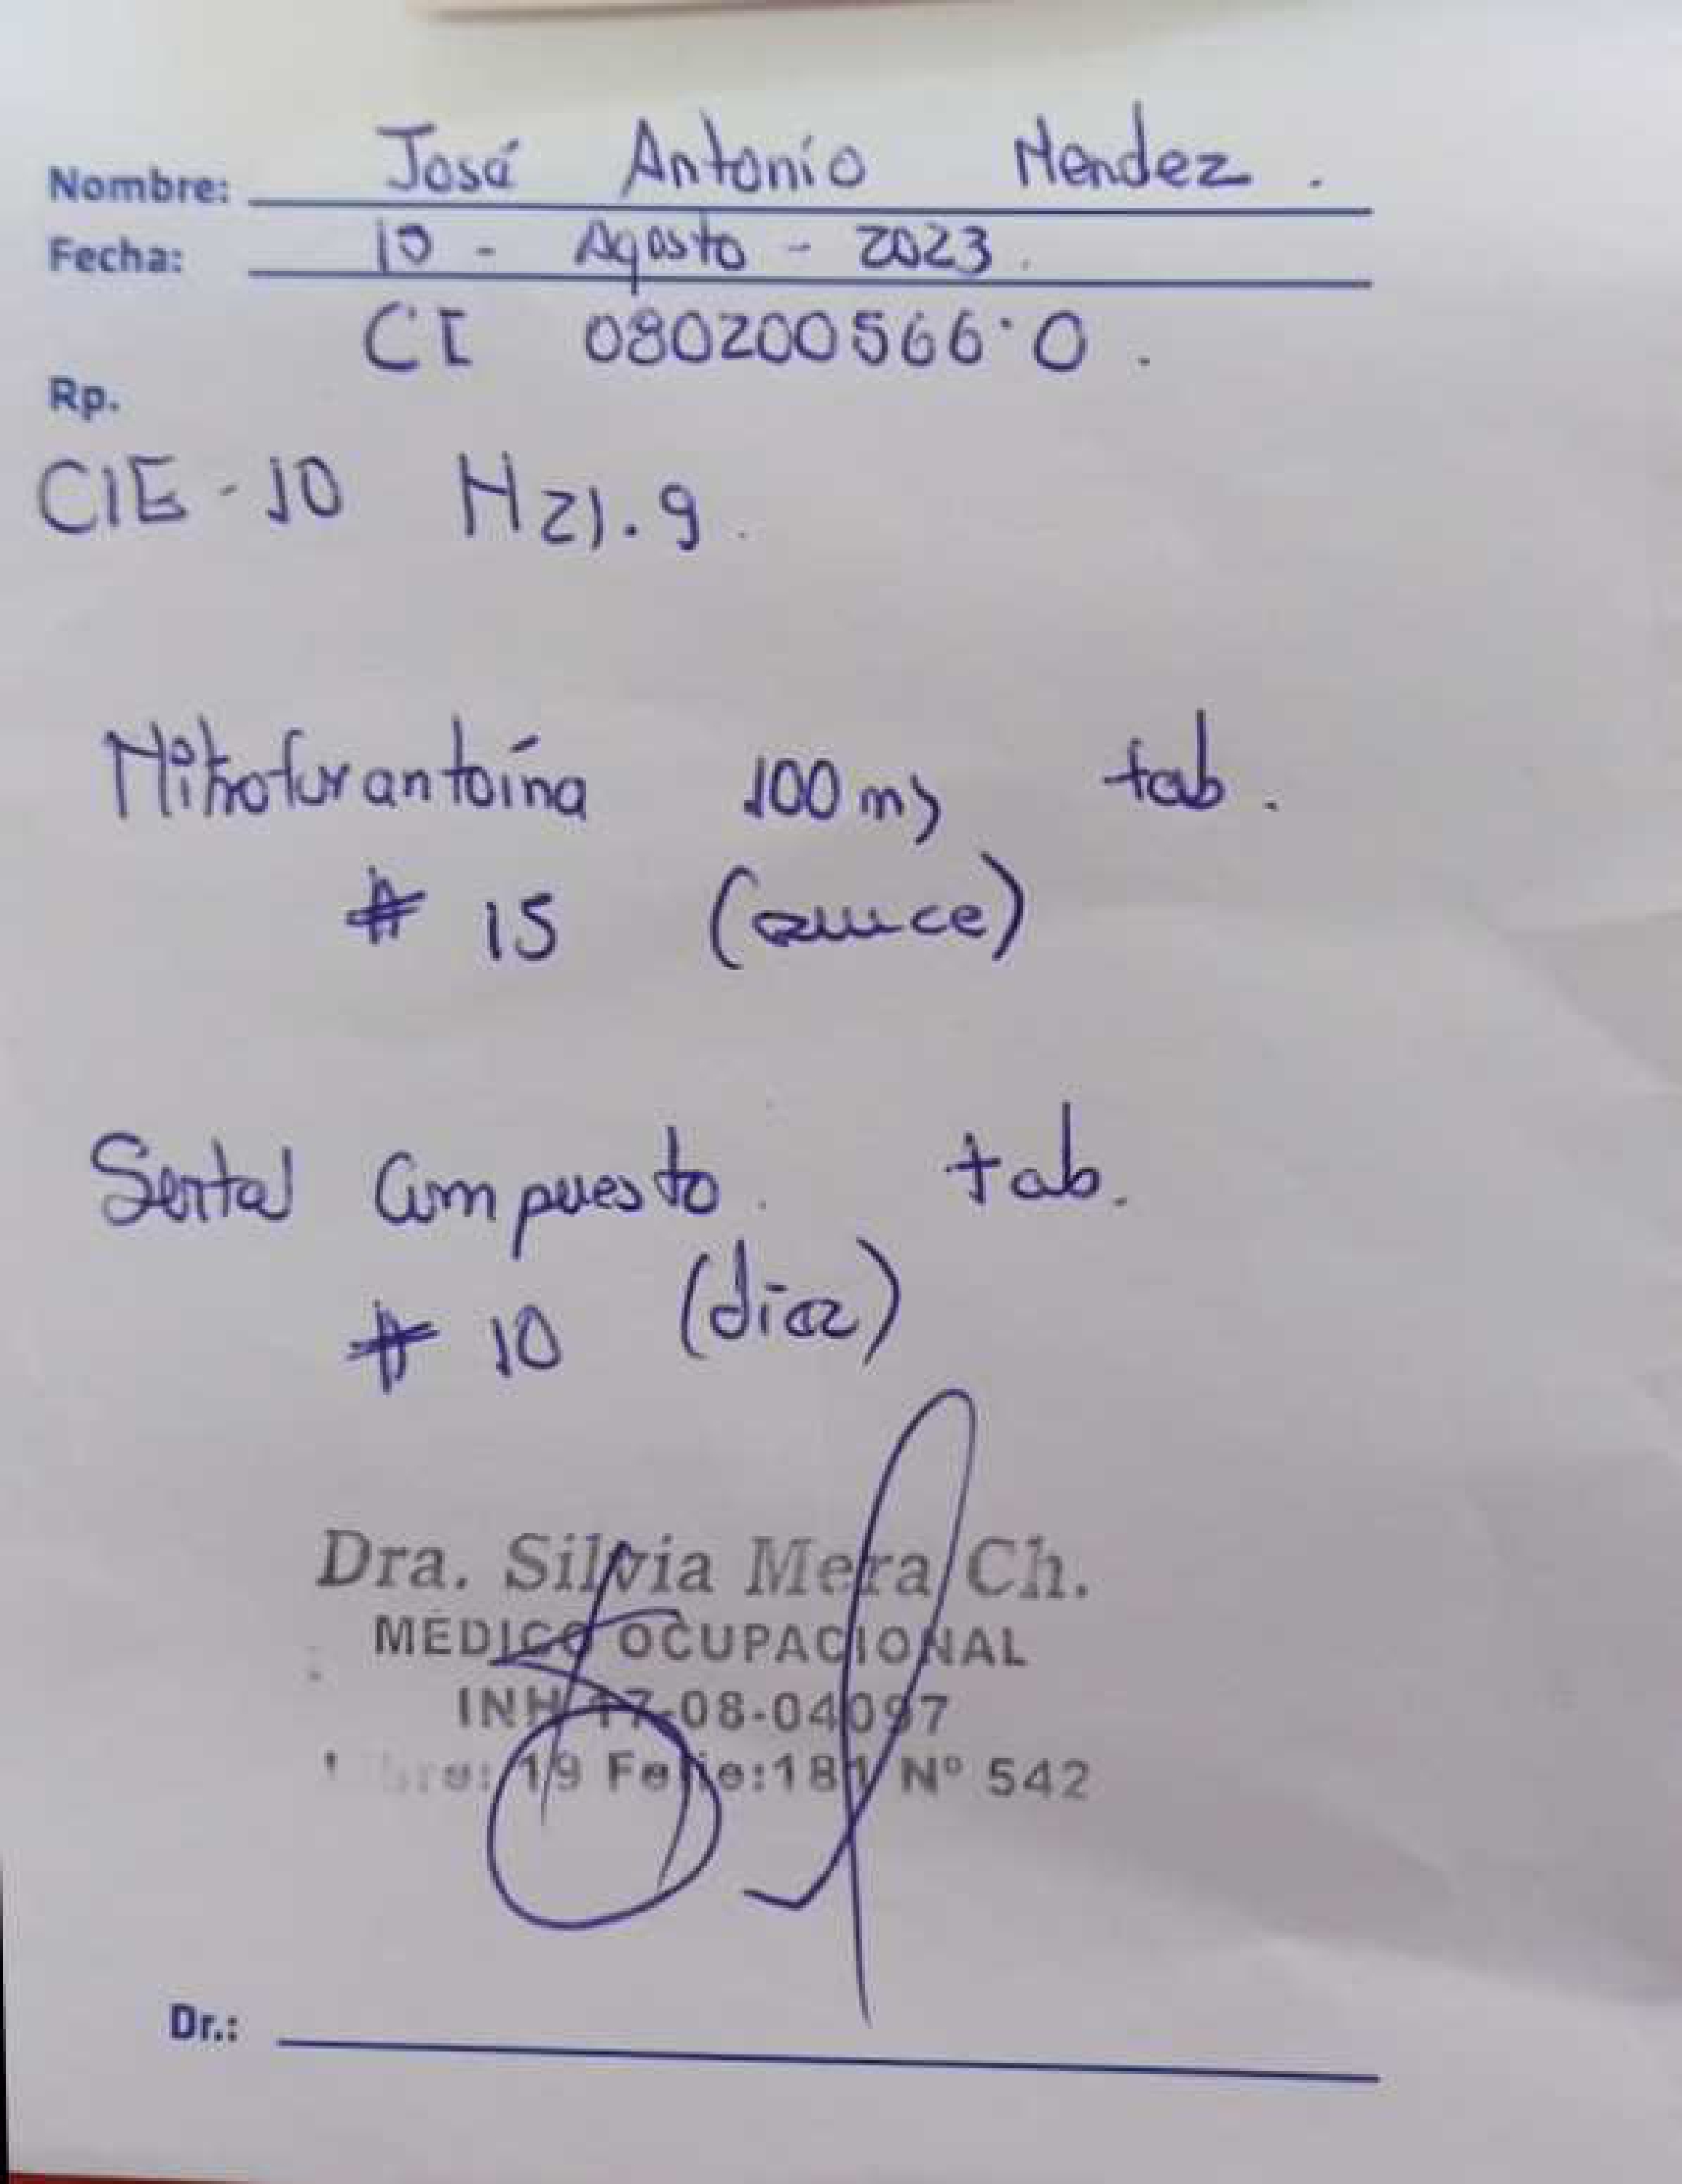 Nombre: José Antonio Mendez.
Fecha: 10 - Agosto - 2023.
CI 080200566-0.
Rp.
CIE-10 N21.9.
Nitrofurantoína 100 mg tab.
# 15 (quince)
Sertal Compuesto. tab.
# 10 (diez)
Dra. Silvia Mera Ch.
MÉDICO OCUPACIONAL
INH 17-08-04097
19 Folio:181 Nº 542
Dr.: